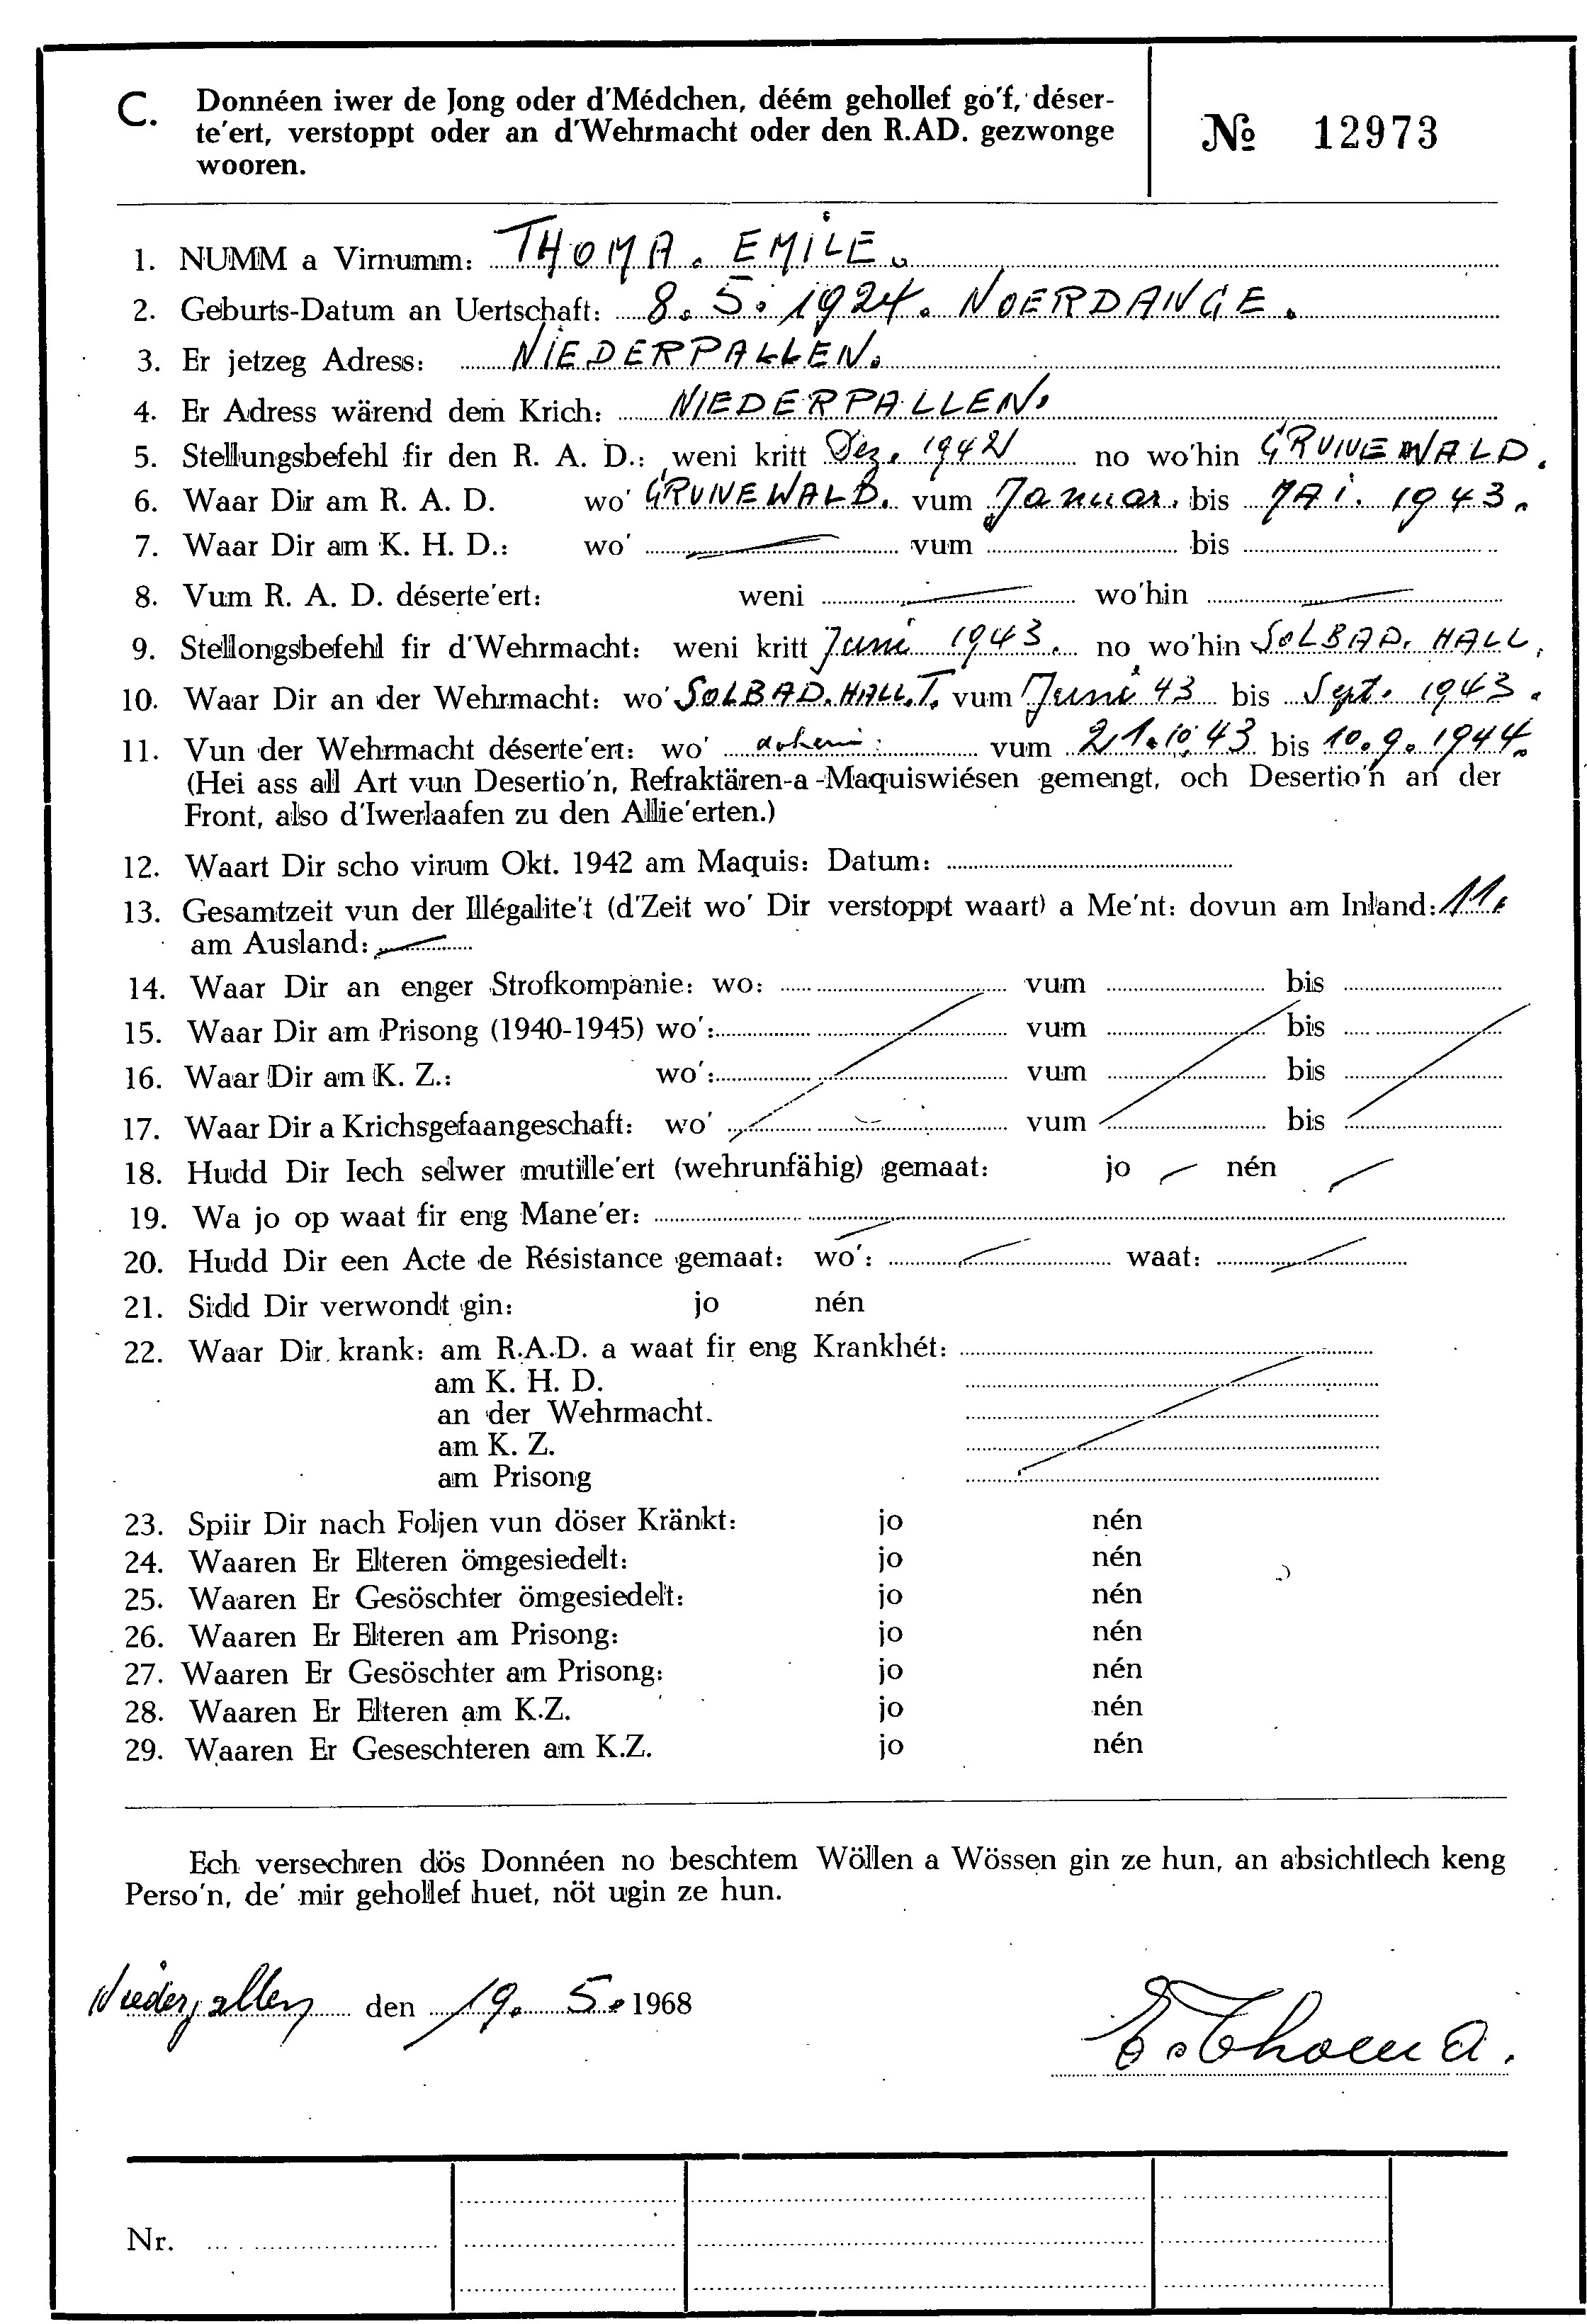 C. Donnéen iwer de Jong oder d'Médchen, déém gehollef go'f, déser-
te'ert, verstoppt oder an d'Wehrmacht oder den R.AD. gezwonge
wooren.
№ 12973
1. NUMM a Virnumm: THOMA. EMILE.
2. Geburts-Datum an Uertschaft: 8. 5. 1924. NOERDANGE.
3. Er jetzeg Adress: NIEDERPALLEN.
4. Er Adress wärend dem Krich: NIEDERPALLEN.
5. Stellungsbefehl fir den R. A. D.: weni kritt Dez. 1942 no wo'hin GRUNEWALD.
6. Waar Dir am R. A. D. wo' GRUNEWALD. vum Januar. bis MAI. 1943.
7. Waar Dir am K. H. D.: wo' vum bis
8. Vum R. A. D. déserte'ert: weni wo'hin
9. Stellongsbefehl fir d'Wehrmacht: weni kritt Juni 1943. no wo'hin SOLBAD. HALL.
10. Waar Dir an der Wehrmacht: wo' SOLBAD. HALL.T. vum Juni 43 bis Sept. 1943.
11. Vun der Wehrmacht déserte'ert: wo' doheim: vum 21.10.43 bis 10.9.1944.
(Hei ass all Art vun Desertio'n, Refraktären-a-Maquiswiésen gemengt, och Desertio'n an der
Front, also d'Iwerlaafen zu den Allie'erten.)
12. Waart Dir scho virum Okt. 1942 am Maquis: Datum:
13. Gesamtzeit vun der Illégalite't (d'Zeit wo' Dir verstoppt waart) a Me'nt: dovun am Inland: 11.
am Ausland:
14. Waar Dir an enger Strofkompanie: wo: vum bis
15. Waar Dir am Prisong (1940-1945) wo': vum bis
16. Waar Dir am K. Z.: wo': vum bis
17. Waar Dir a Krichsgefaangeschaft: wo' vum bis
18. Hudd Dir Iech selwer mutille'ert (wehrunfähig) gemaat: jo nén
19. Wa jo op waat fir eng Mane'er:
20. Hudd Dir een Acte de Résistance gemaat: wo': waat:
21. Sidd Dir verwondt gin: jo nén
22. Waar Dir krank: am R.A.D. a waat fir eng Krankhét:
am K. H. D.
an der Wehrmacht.
am K. Z.
am Prisong
23. Spiir Dir nach Foljen vun döser Kränkt: jo nén
24. Waaren Er Elteren ömgesiedelt: jo nén
25. Waaren Er Gesöschter ömgesiedelt: jo nén
26. Waaren Er Elteren am Prisong: jo nén
27. Waaren Er Gesöschter am Prisong: jo nén
28. Waaren Er Elteren am K.Z. jo nén
29. Waaren Er Geseschteren am K.Z. jo nén
Ech versechren dös Donnéen no beschtem Wöllen a Wössen gin ze hun, an absichtlech keng
Perso'n, de' mir gehollef huet, nöt ugin ze hun.
Niederpallen den 19. 5. 1968
E. Thoma.
Nr.